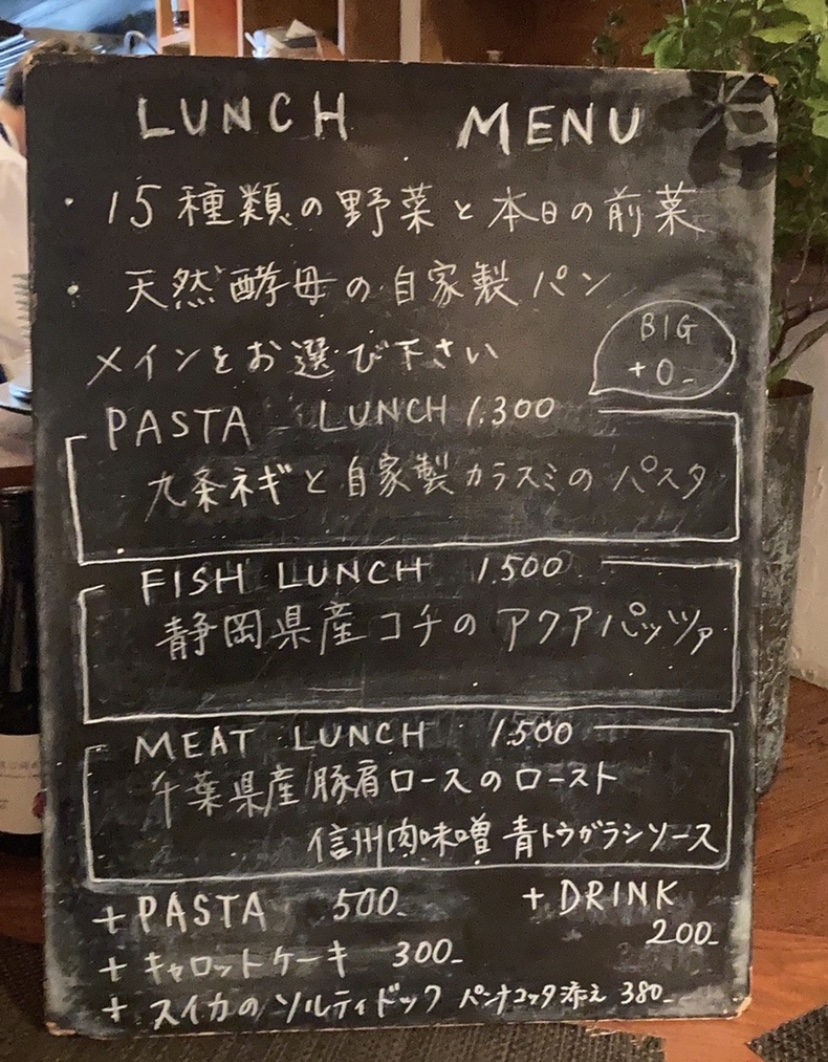 LUNCH MENU
・15種類の野菜と本日の前菜
・天然酵母の自家製パン
メインをお選び下さい
BIG
+0-
PASTA LUNCH 1.300
九条ネギと自家製カラスミのパスタ
FISH LUNCH 1.500
静岡県産コチのアクアパッツァ
MEAT LUNCH 1.500
千葉県産豚肩ロースのロースト
信州肉味噌 青トウガラシソース
+PASTA 500-
+DRINK
200-
+キャロットケーキ 300-
+スイカのソルティドック パンナコッタ添え 380-